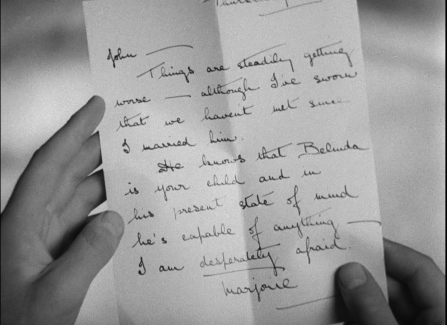 Thursday
John —
Things are steadily getting
worse — although I've sworn
that we havent met since
I married him.
He knows that Belinda
is your child and in
his present state of mind
he's capable of anything —
I am desperately afraid.
Marjorie